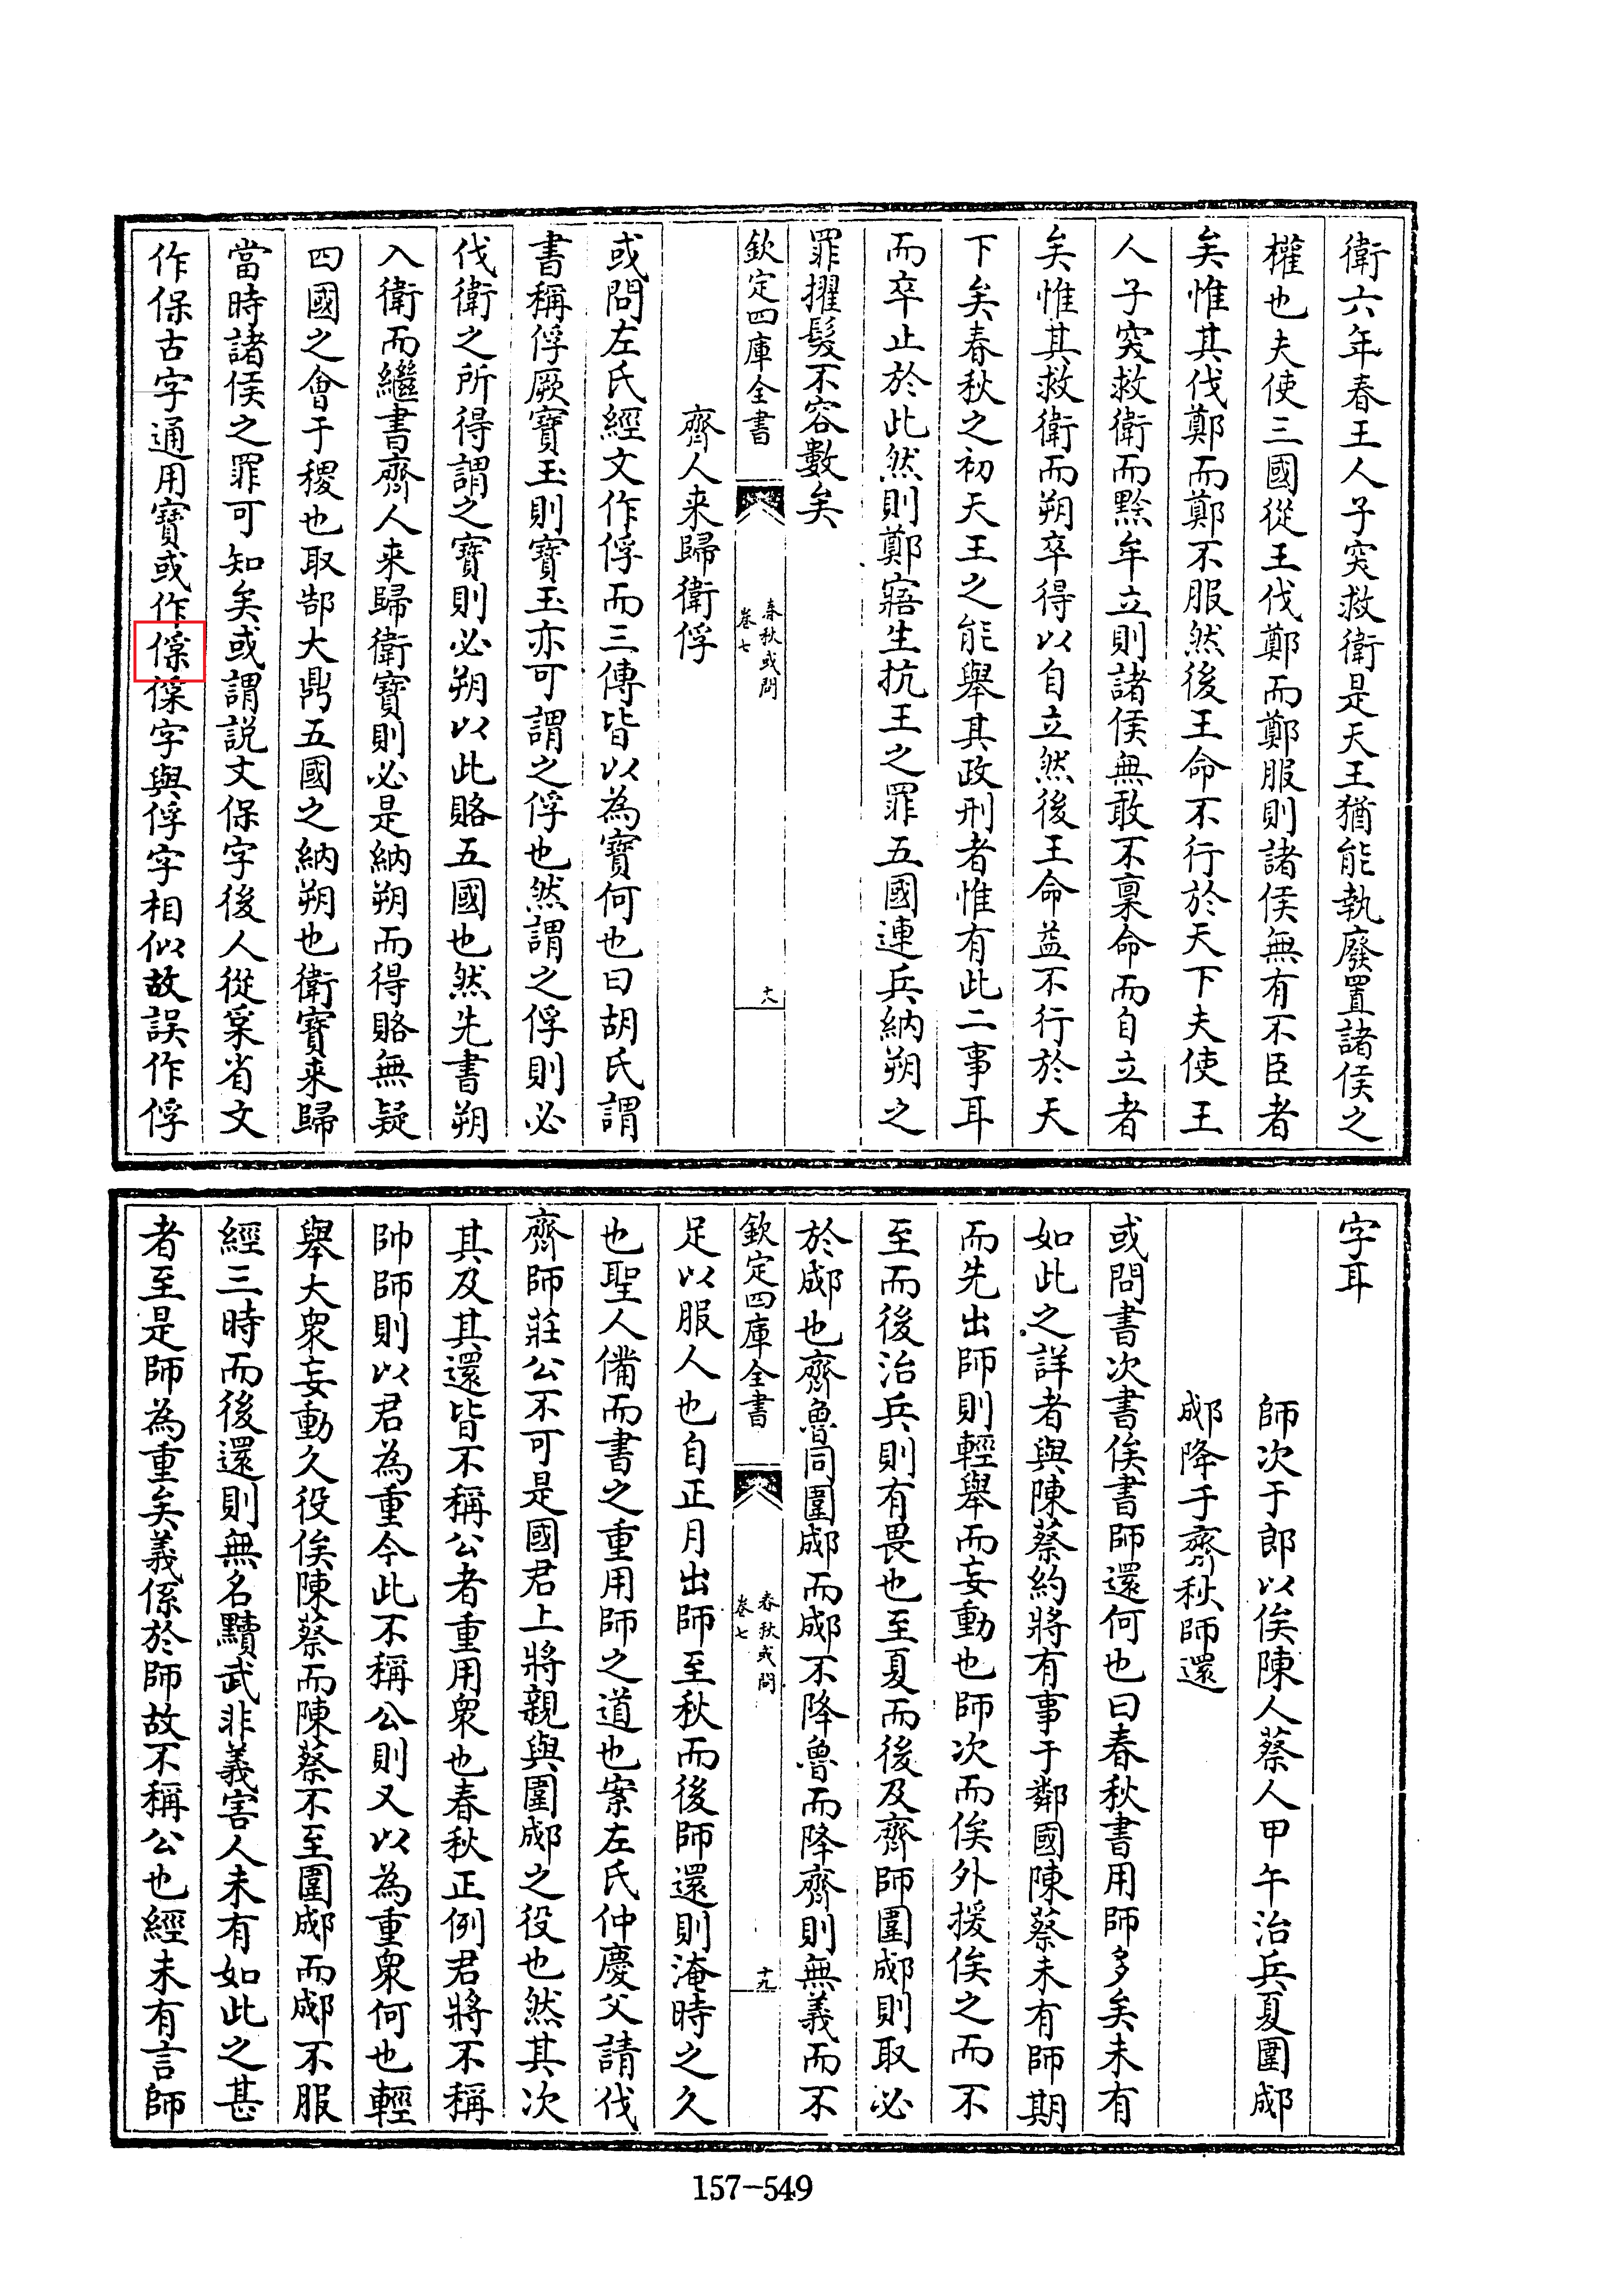 衛六年春王人子突救衛是天王猶能執廢置諸侯之
權也夫使三國從王伐鄭而鄭服則諸侯無有不臣者
矣惟其伐鄭而鄭不服然後王命不行於天下夫使王
人子突救衛而黔牟立則諸侯無敢不稟命而自立者
矣惟其救衛而朔卒得以自立然後王命益不行於天
下矣春秋之初天王之能舉其政刑者惟有此二事耳
而卒止於此然則鄭寤生抗王之罪五國連兵納朔之
罪擢髮不容數矣
欽定四庫全書
春秋或問
卷七
十八
齊人来歸衛俘
或問左氏經文作俘而三傳皆以為寶何也曰胡氏謂
書稱俘厥寶玉則寶玉亦可謂之俘也然謂之俘則必
伐衛之所得謂之寶則必朔以此賂五國也然先書朔
入衛而繼書齊人来歸衛寶則必是納朔而得賂無疑
四國之會于稷也取郜大鼎五國之納朔也衛寶来歸
當時諸侯之罪可知矣或謂説文保字後人從𤓽省文
作保古字通用寶或作𠊻𠊻字與俘字相似故誤作俘
字耳
師次于郎以俟陳人蔡人甲午治兵夏圍郕
郕降于齊秋師還
或問書次書俟書師還何也曰春秋書用師多矣未有
如此之詳者與陳蔡約將有事于鄰國陳蔡未有師期
而先出師則輕舉而妄動也師次而俟外援俟之而不
至而後治兵則有畏也至夏而後及齊師圍郕則取必
於郕也齊魯同圍郕而郕不降魯而降齊則無義而不
欽定四庫全書
春秋或問
卷七
十九
足以服人也自正月出師至秋而後師還則淹時之久
也聖人備而書之重用師之道也案左氏仲慶父請伐
齊師莊公不可是國君上將親與圍郕之役也然其次
其及其還皆不稱公者重用衆也春秋正例君將不稱
帥師則以君為重今此不稱公則又以為重衆何也輕
舉大衆妄動久役俟陳蔡而陳蔡不至圍郕而郕不服
經三時而後還則無名黷武非義害人未有如此之甚
者至是師為重矣義係於師故不稱公也經未有言師
157-549